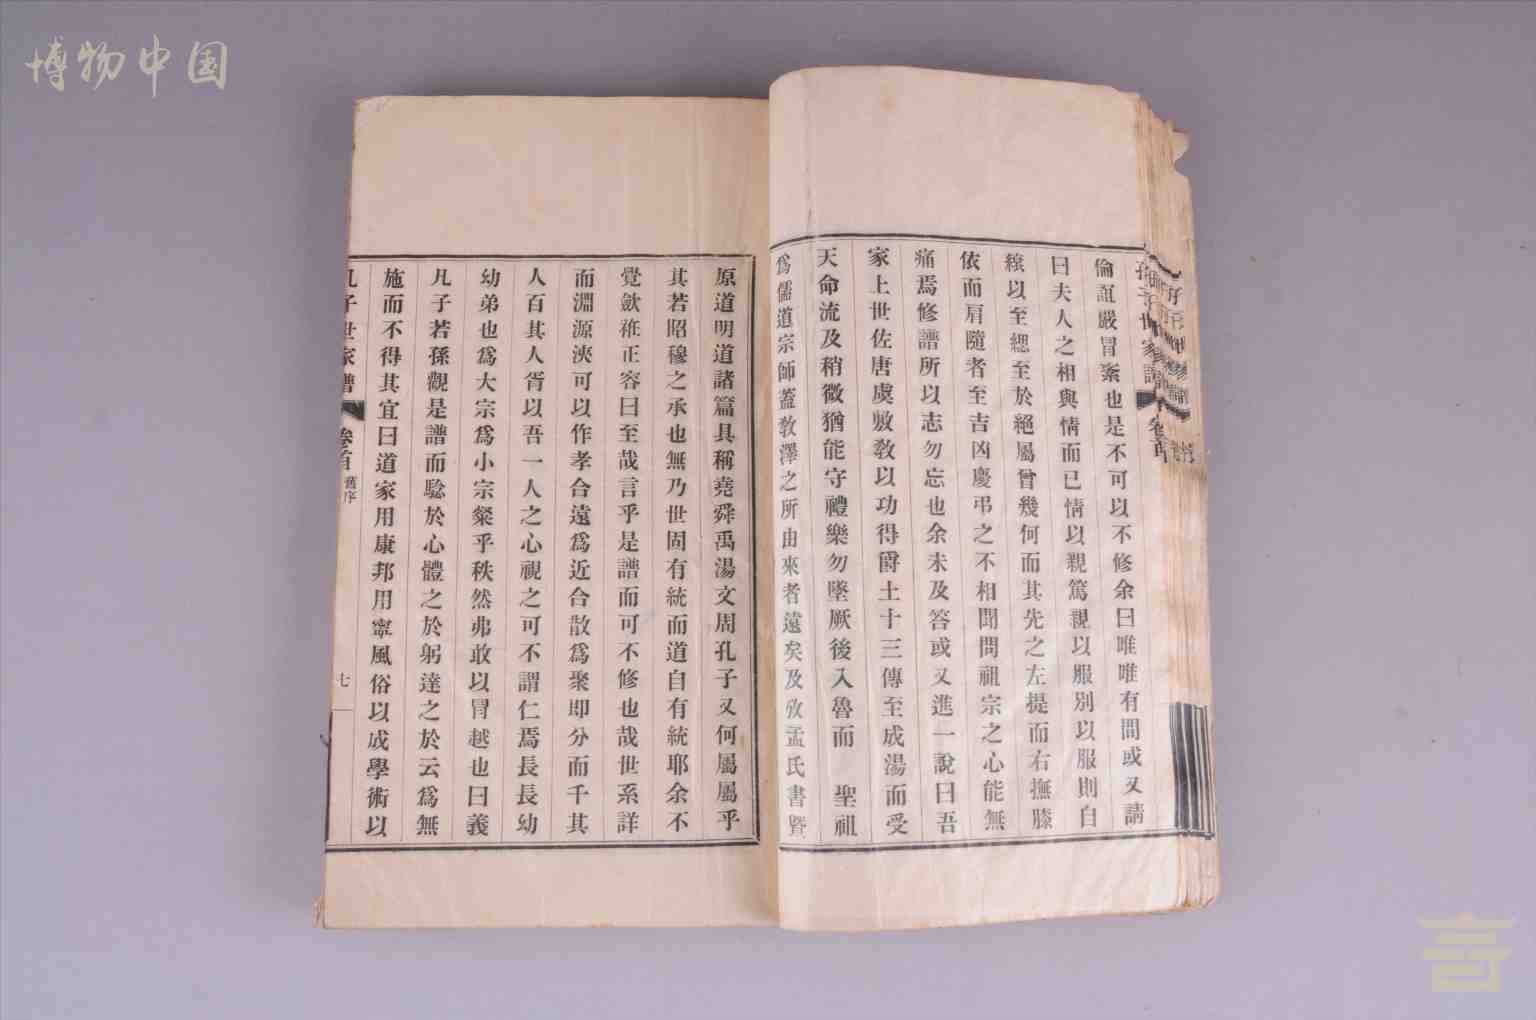 博物中国
倫誼嚴冒紊也是不可以不修余曰唯唯有間或又請
曰夫人之相與情而已情以親篤親以服別以服則自
縗以至緦至於絕屬曾幾何而其先之左提而右撫膝
依而肩隨者至吉凶慶弔之不相聞問祖宗之心能無
痛焉修譜所以志勿忘也余未及答或又進一說曰吾
家上世佐唐虞敷敎以功得爵土十三傳至成湯而受
天命流及稍微猶能守禮樂勿墜厥後入魯而 聖祖
爲儒道宗師蓋敎澤之所由來者遠矣及攷孟氏書暨
原道明道諸篇具稱堯舜禹湯文周孔子又何屬屬乎
其若昭穆之承也無乃世固有統而道自有統耶余不
覺歛袵正容曰至哉言乎是譜而可不修也哉世系詳
而淵源浹可以作孝合遠爲近合散爲聚卽分而千其
人百其人胥以吾一人之心視之可不謂仁焉長長幼
幼弟也爲大宗爲小宗粲乎秩然弗敢以冒越也曰義
凡子若孫觀是譜而騐於心體之於躬達之於云爲無
施而不得其宜曰道家用康邦用寧風俗以成學術以
孔子世家譜 卷首 舊序 七